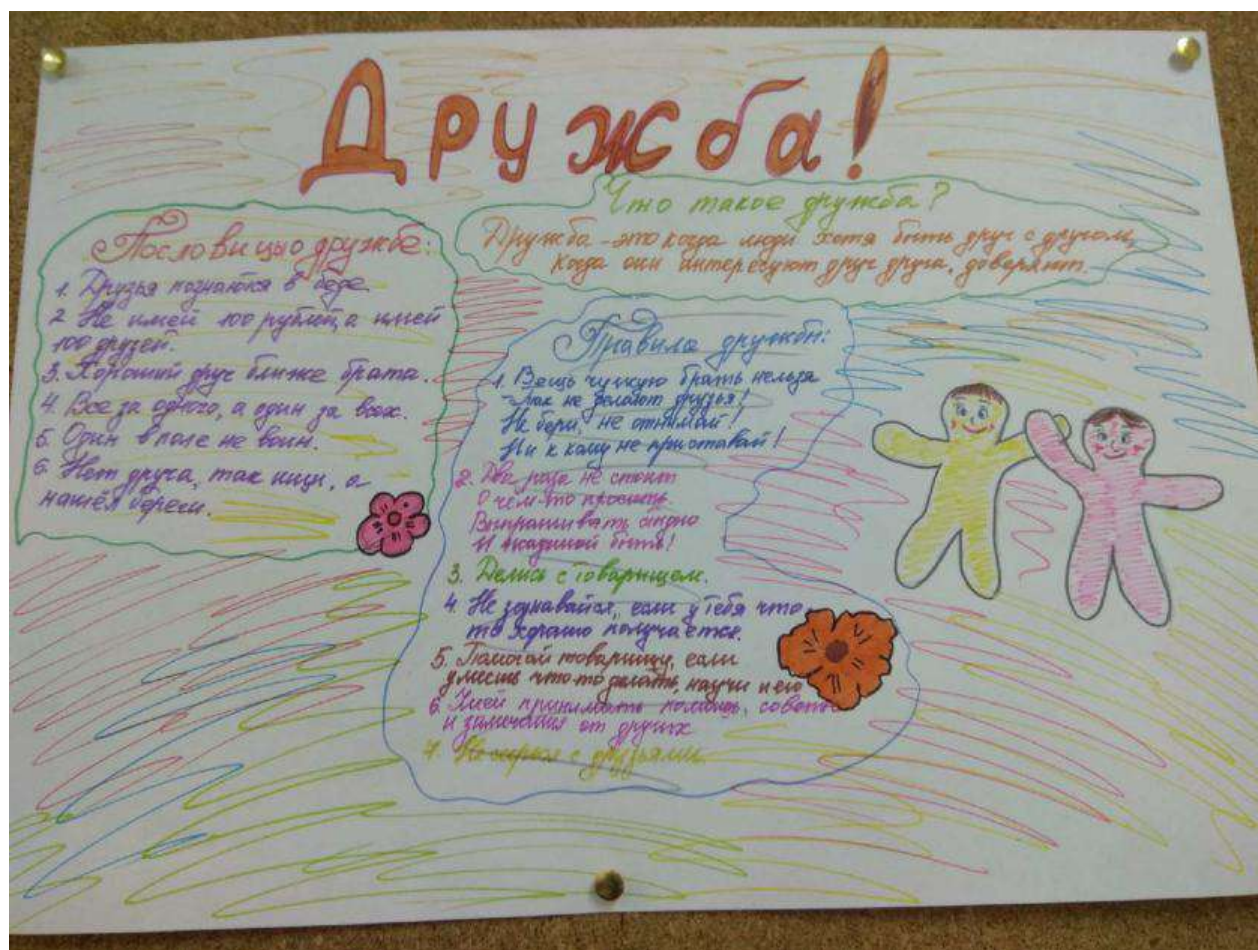 Дружба!
Что такое дружба?
Дружба - это когда люди хотя быть друг с другом,
когда они интересуют друг друга, доверяют.
Пословицы о дружбе:
1. Друзья познаются в беде
2. Не имей 100 рублей, а имей
100 друзей.
3. Хороший друг ближе брата.
4. Все за одного, а один за всех.
5. Один в поле не воин.
6. Нет друга, так ищи, а
нашёл береги.
Правила дружбы:
1. Вещь чужую брать нельзя
- Так не делают друзья!
Не бери, не отнимай!
Ни к кому не приставай!
2. Два раза не стоит
О чем-то просить.
Выпрашивать стыдно
И жадиной быть!
3. Делись с товарищем.
4. Не зазнавайся, если у тебя что
то хорошо получается.
5. Помогай товарищу, если
умеешь что то делать, научи и его
6. Умей принимать помощь, советы
и замечания от других
7. Не с друзьями.